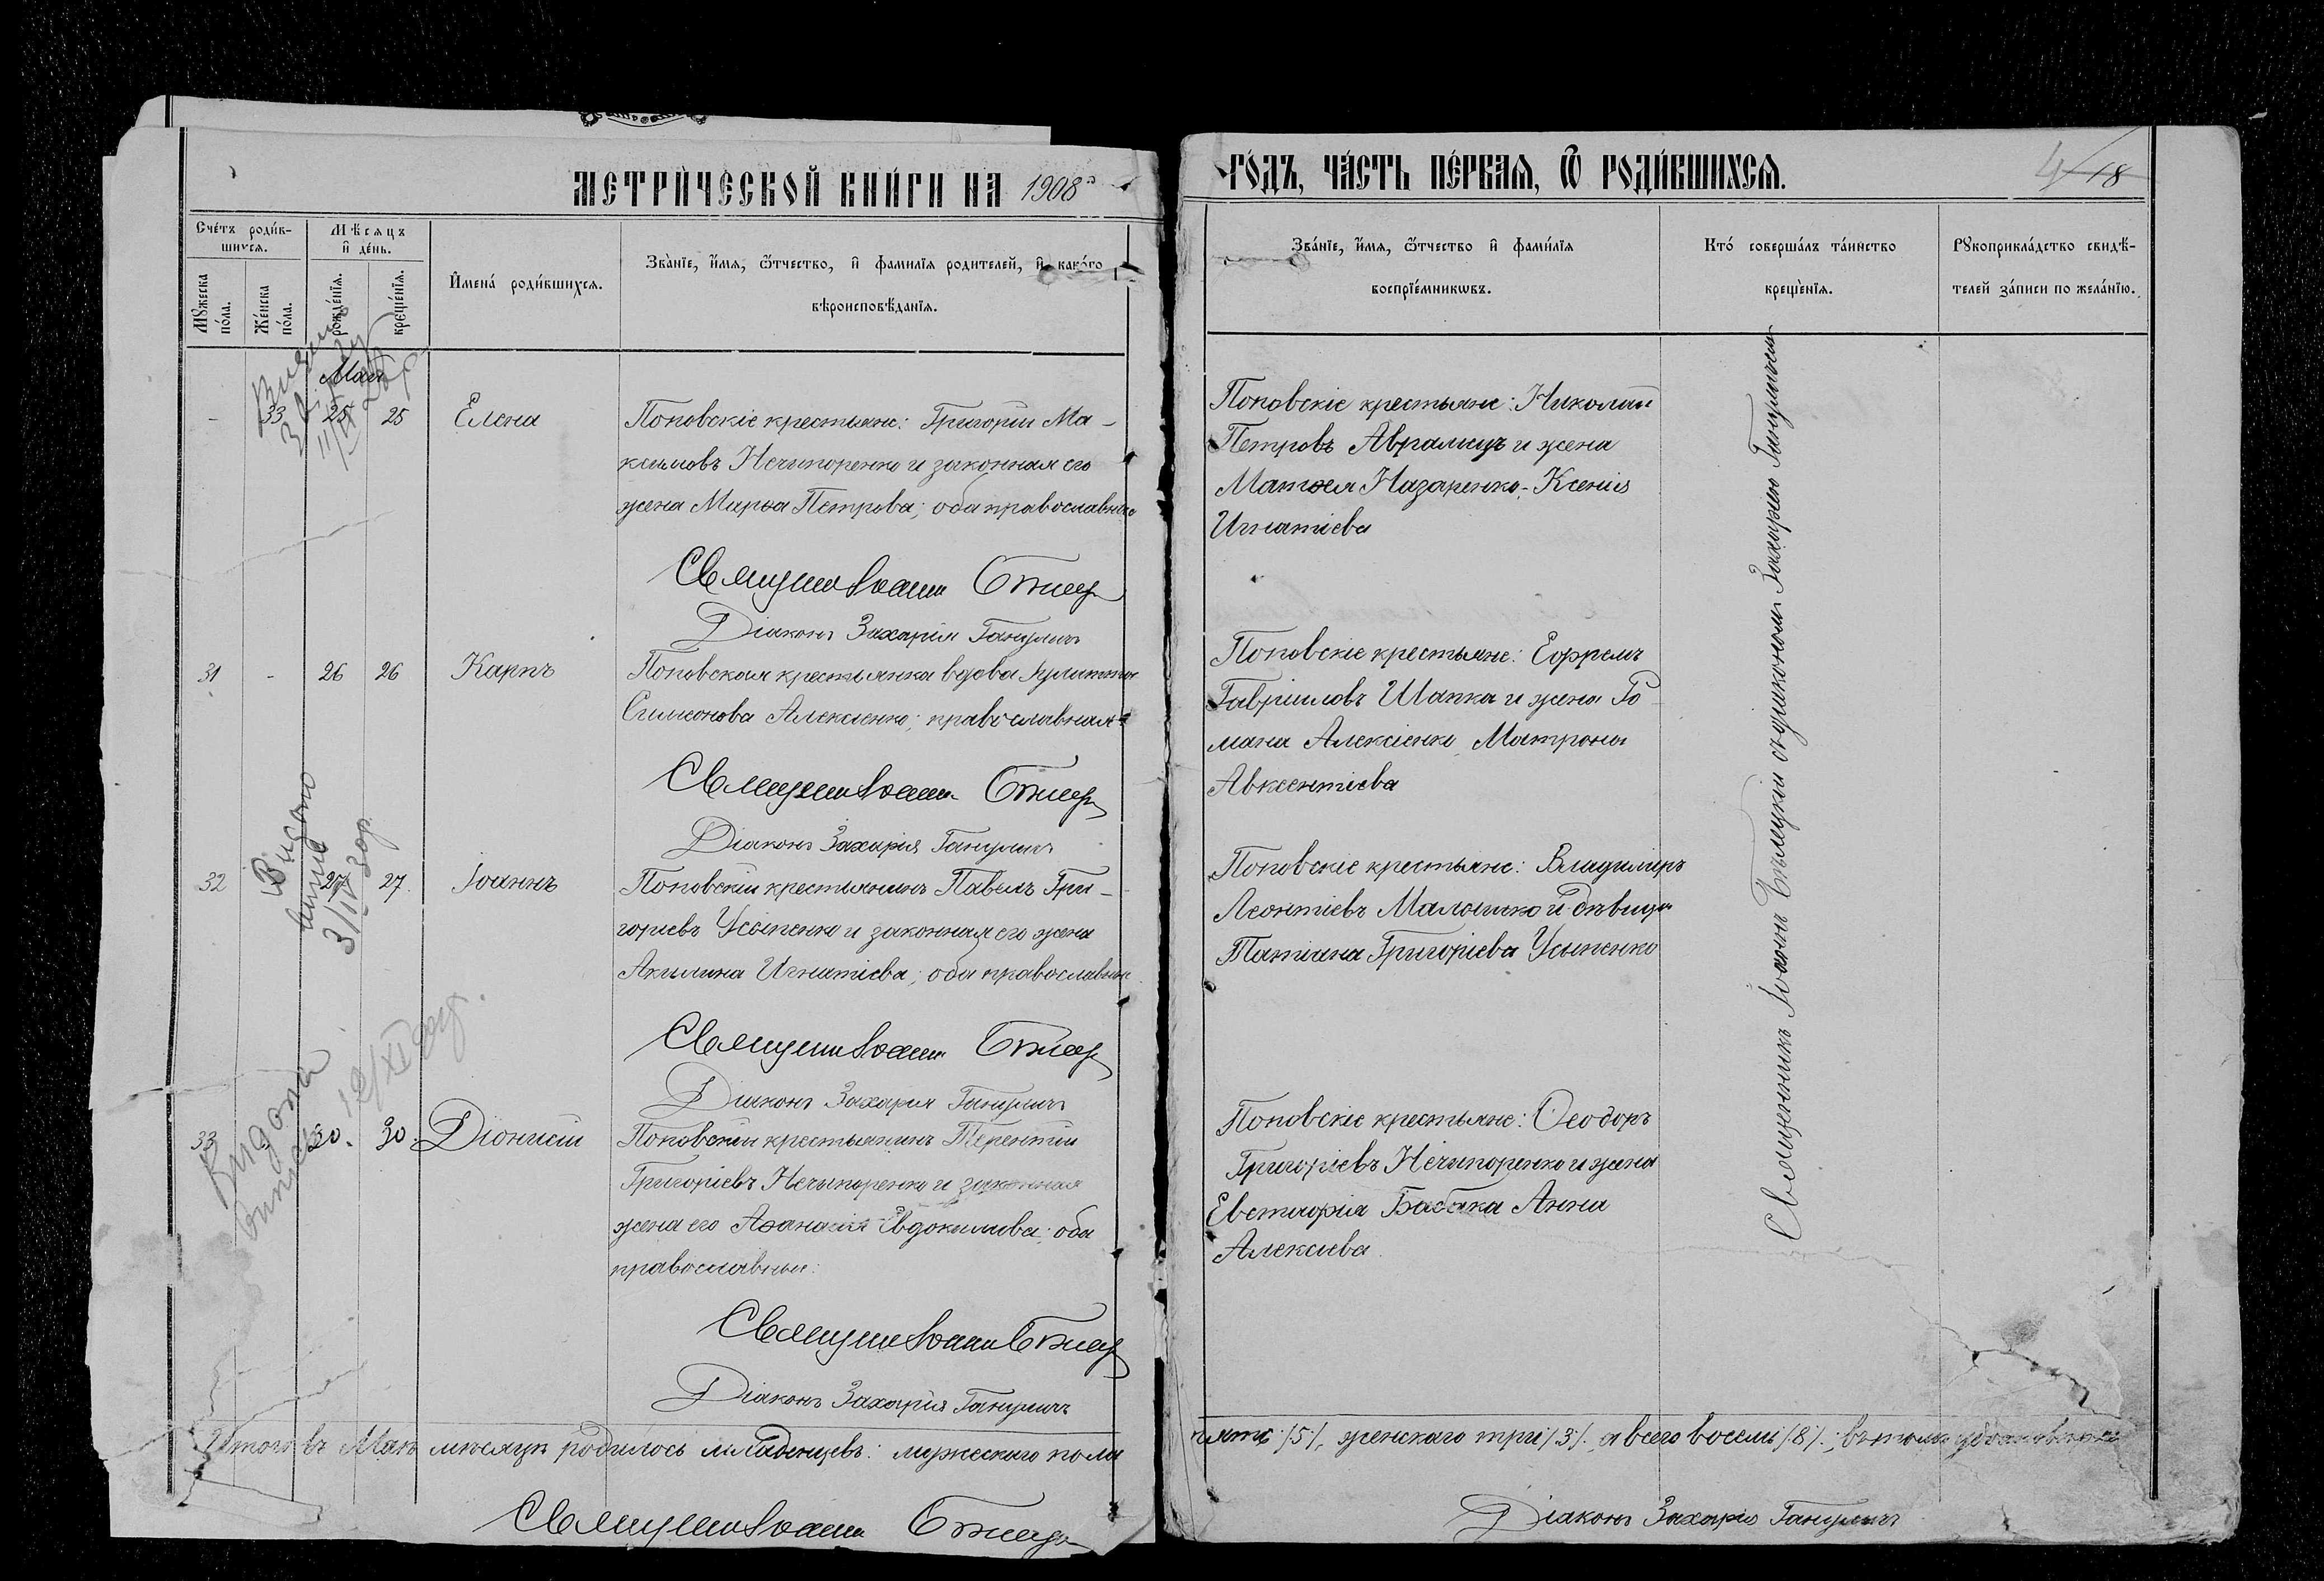 МЕТРИ́ЧЕСКОЙ КНИ́ГИ НА 1908
ГО́ДЪ, ЧА́СТЬ ПЕ́РВАЯ, Ѿ РОДИ́ВШИХСЯ.
4 18
Сче́тъ роди́в-
шихся.
Мѣсяцъ
и҆ де́нь.
Мꙋжеска
по́ла.
Же́нска
по́ла.
рожде́нїя.
креще́нїя.
И҆мена́ роди́вшихся.
Зва́нїе, и҆́мя, ѻ҆́тчество, и҆ фами́лїя родителей, и҆ како́го
вѣроисповѣ́данїя.
Зва́нїе, и҆́мя, ѻ҆́тчество и҆ фами́лїя
воспрїе́мникωвъ.
Кто́ соверша́лъ та́инство
креще́нїя.
Рꙋкоприкла́дство свидѣ́-
телей за́писи по жела́нїю.
Май
- 33 25 25 Елена
Поповскіе крестьяне: Григорій Ма-
ксимовъ Нечипоренко и законная его
жена Марѳа Петрова; оба православные
Священникъ Іоаннъ
Діаконъ Захарія
Поповскіе крестьяне: Николай
Петровъ Аврамецъ и жена
Матѳея Назаренко - Ксенія
Игнатіева
31 - 26 26 Карпъ
Поповская крестьянка вдова Іулитта
Симеонова Алексіенко; православная
Священникъ Іоаннъ
Діаконъ Захарія
Поповскіе крестьяне: Ефремъ
Гавріиловъ Шапка и жена Ро-
мана Алексіенко Матрона
Авксентіева
32 27 27 Іоаннъ
Поповскій крестьянинъ Павелъ Гри-
горіевъ Усыпенко и законная его жена
Акилина Игнатіева; оба православные
Священникъ Іоаннъ
Діаконъ Захарія
Поповскіе крестьяне: Владиміръ
Леонтіевъ и дѣвица
Татіана Григоріева Усыпенко
33 - 30 30 Діонисій
Поповскій крестьянинъ Терентій
Григоріевъ Нечипоренко и законная
жена его Аѳанасія Евдокимова; оба
православные.
Священникъ Іоаннъ
Діаконъ Захарія
Поповскіе крестьяне: Ѳеодоръ
Григоріевъ Нечипоренко и жена
Евстафія Бабака Анна
Алексіева.
Священникъ Іоаннъ съ діакономъ Захаріею
Видано
3/IV
Видана
12/XI
Итого въ Маѣ мѣсяцѣ родилось младенцевъ: мужескаго пола
пять /5/, женскаго три /3/, а всего восемь /8/;
Священникъ Іоаннъ
Діаконъ Захарія